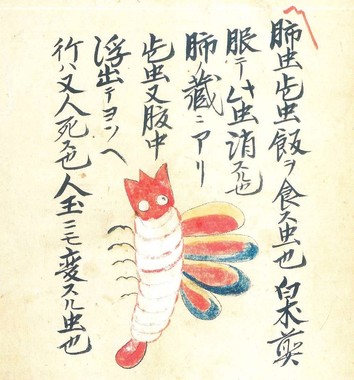 肺虫此虫飯ヲ食ス虫也 白朮煎
服テ此虫消スル也
肺ノ蔵ニアリ
此虫又腹中
浮出テヨソヘ
行ハ又人死ス也 人玉ニモ変スル虫也